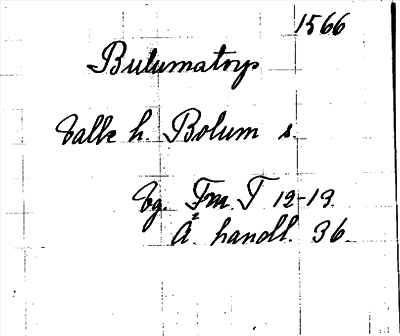 1566
Bulumatorp
Valle h. Bolum s.
Vg. Fm. I 12-13.
Ä. handl. 36.